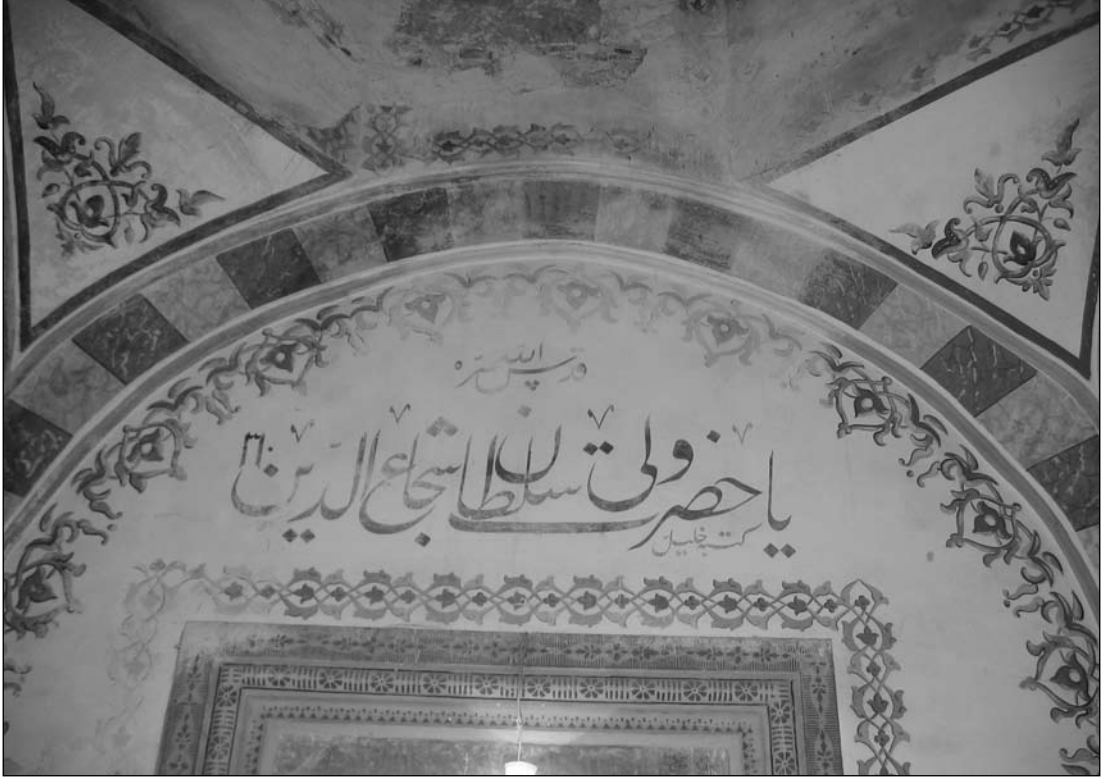 قدس الله سره
يا حضرت سلطان شجاع الدين ولى
كتبه خليل